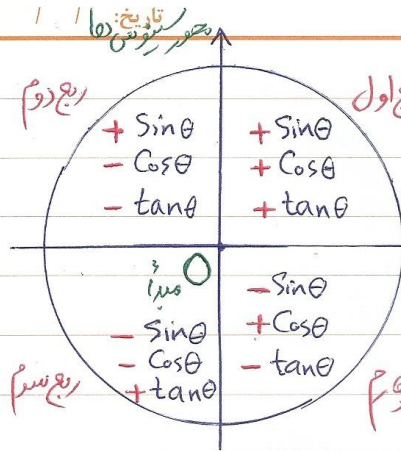 تاریخ: / /
محور سینوس ها
ربع دوم
ع اول
+ Sinθ
− Cosθ
− tanθ
+ Sinθ
+ Cosθ
+ tanθ
مبدأ
O
− Sinθ
− Cosθ
+ tanθ
− Sinθ
+ Cosθ
− tanθ
ربع سوم